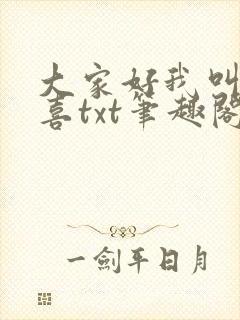 大家好我叫
喜txt笔趣阁
一剑平日月